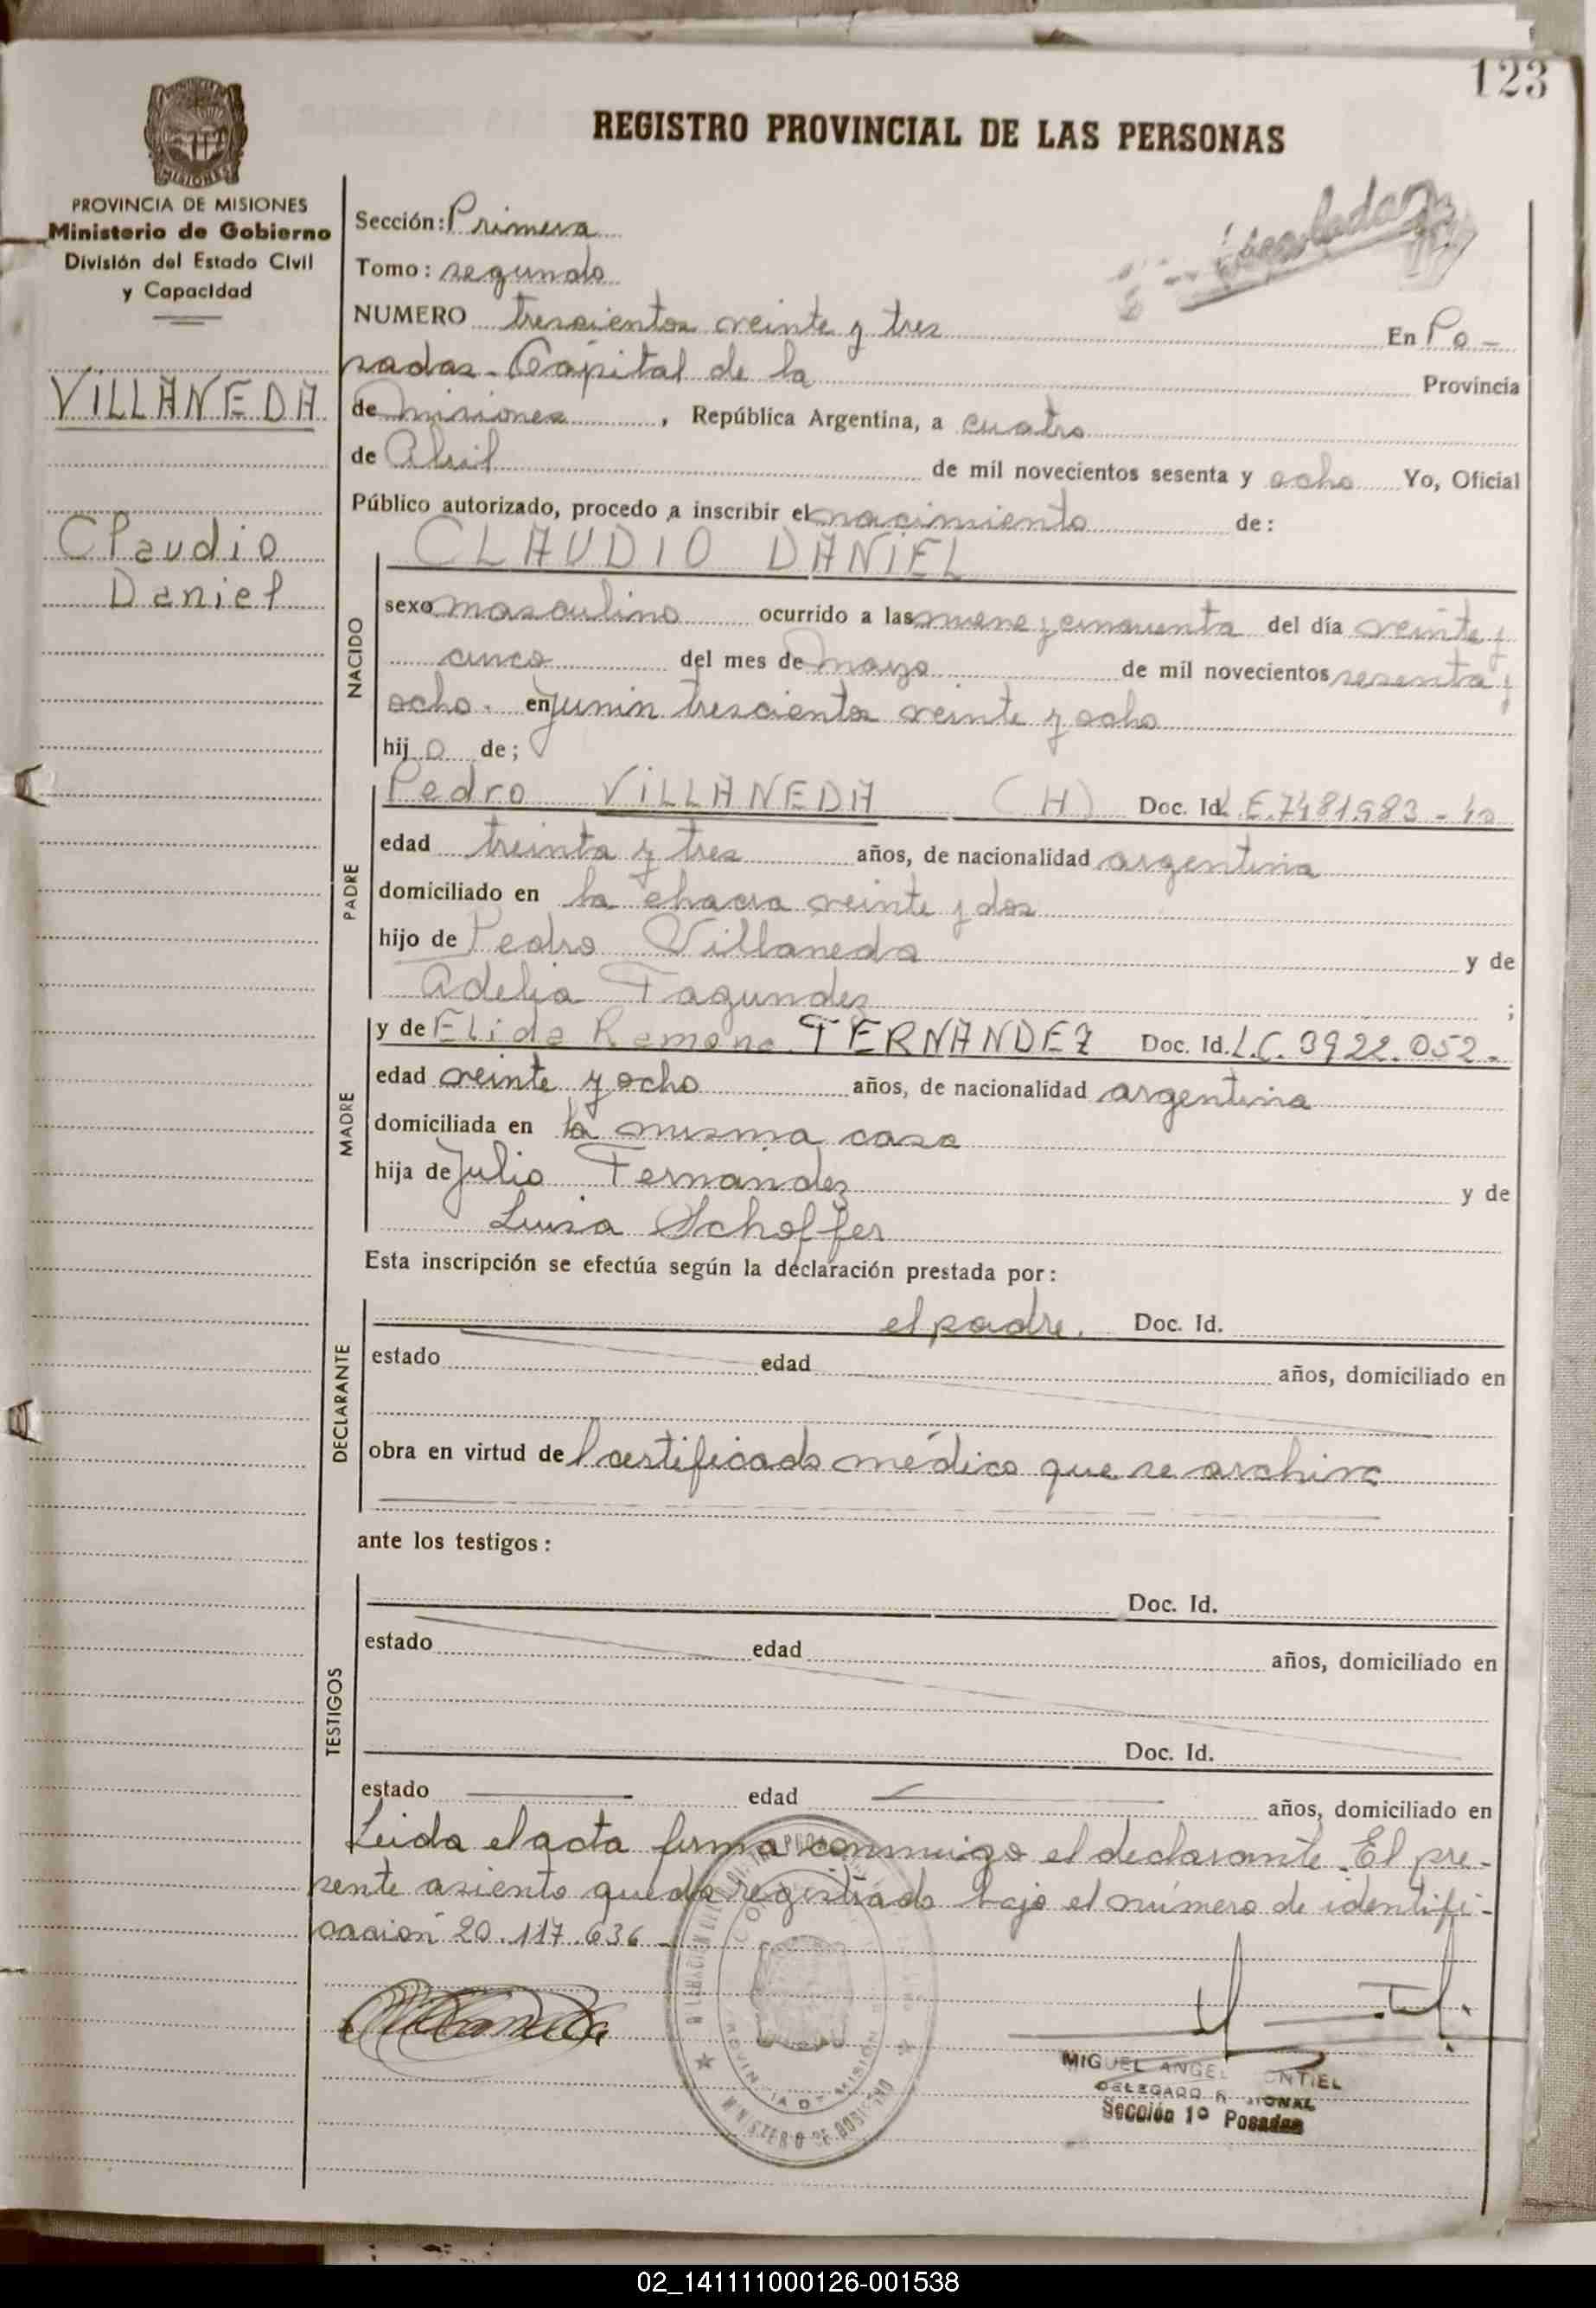 123
REGISTRO PROVINCIAL DE LAS PERSONAS
MISIONES
PROVINCIA DE MISIONES
Ministerio de Gobierno
División del Estado Civil
y Capacidad
VILLANEDA
Claudio
Daniel
Sección: Primera
Tomo: segundo
NUMERO trescientos veinte y tres En Po-
sadas - Capital de la Provincia
de Misiones, República Argentina, a cuatro
de Abril de mil novecientos sesenta y ocho Yo, Oficial
Público autorizado, procedo a inscribir el nacimiento de:
CLAUDIO DANIEL
NACIDO
sexo masculino ocurrido a las nueve y cincuenta del día veinte y
cinco del mes de mayo de mil novecientos sesenta y
ocho. en Junin trescientos veinte y ocho
hijo de;
PADRE
Pedro VILLANEDA (H) Doc. Id. L.E. 7481983 -
edad treinta y tres años, de nacionalidad argentina
domiciliado en la chacra veinte y dos
hijo de Pedro Villaneda y de
Adelia Fagundez ;
MADRE
y de Elida Ramona FERNANDEZ Doc. Id. L.C. 3922.052-
edad veinte y ocho años, de nacionalidad argentina
domiciliada en la misma casa
hija de Julio Fernandez y de
Luisa Schoffer
Esta inscripción se efectúa según la declaración prestada por:
DECLARANTE
el padre. Doc. Id.
estado edad años, domiciliado en
obra en virtud del certificado médico que se archiva
ante los testigos:
TESTIGOS
Doc. Id.
estado edad años, domiciliado en
Doc. Id.
estado edad años, domiciliado en
Leida el acta firma conmigo el declarante. El pre-
sente asiento queda registrado bajo el número de identifi-
cacion 20.117.636 -
MIGUEL ANGEL
DELEGADO
Sección 1º Posadas
MINISTERIO DE GOBIERNO
02_141111000126-001538